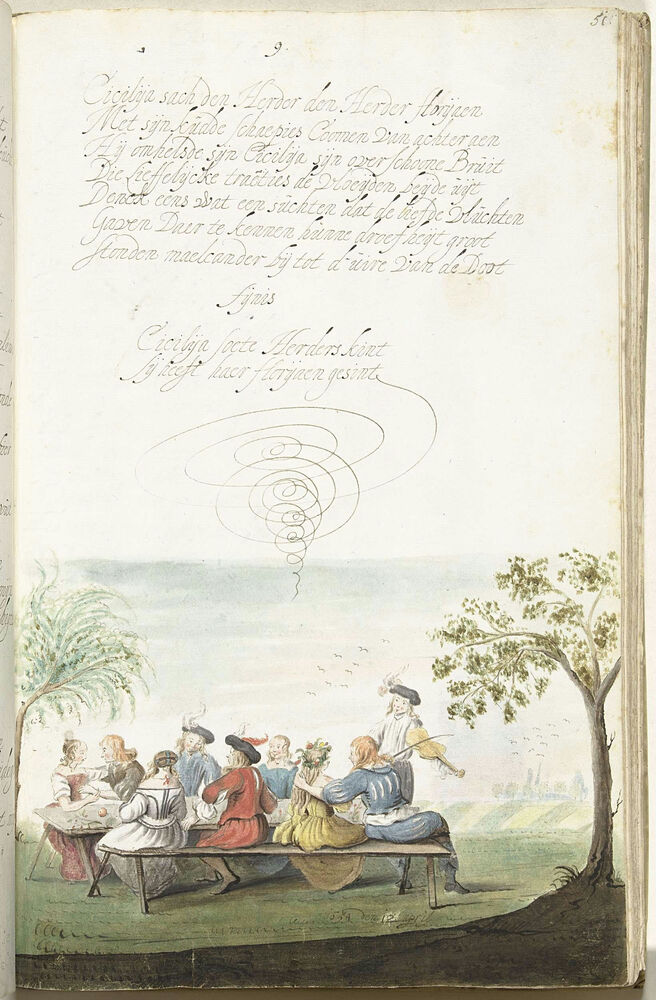 9.
56
Cicilija sach den Herder den Herder florijaen
Met sijn kudde schaepies Coomen van achter aen
Hij omhelsde sijn Cicilija sijn over schoone Bruit
Die Lieffelijcke tracties de vloeyden beyde uijt
Denck eens wat een suchten dat de liefde vluchten
Gaven Daer te kennen hunne droefheijt groot
stonden maelcander bij tot d'uire van de Doot
fijnis
Cicilija soete Herders kint
sij heeft haer florijaen gesint